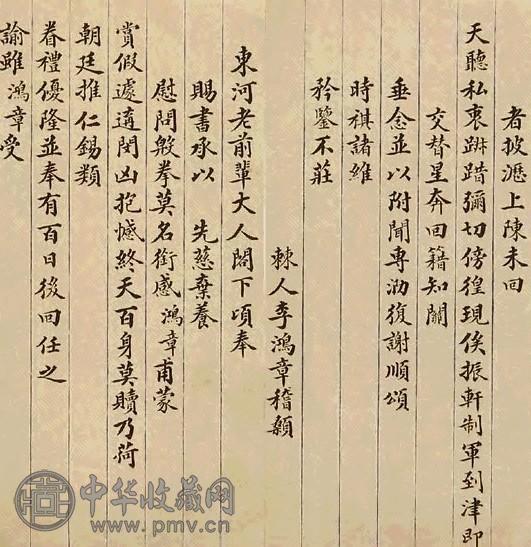 者披瀝上陳未回
天聽私衷跼蹐彌切傍徨現俟振軒制軍到津即
交替星奔回籍知關
垂念並以附聞專泐復謝順頌
時祺諸維
矜鑒不莊
棘人李鴻章稽顙
東河老前輩大人閣下頃奉
賜書承以 先慈棄養
慰問殷拳莫名銜感鴻章甫蒙
賞假遽遘閔凶抱憾終天百身莫贖乃荷
朝廷推仁錫類
眷禮優隆並奉有百日後回任之
諭雖鴻章受
中华收藏网
www.pmv.cn